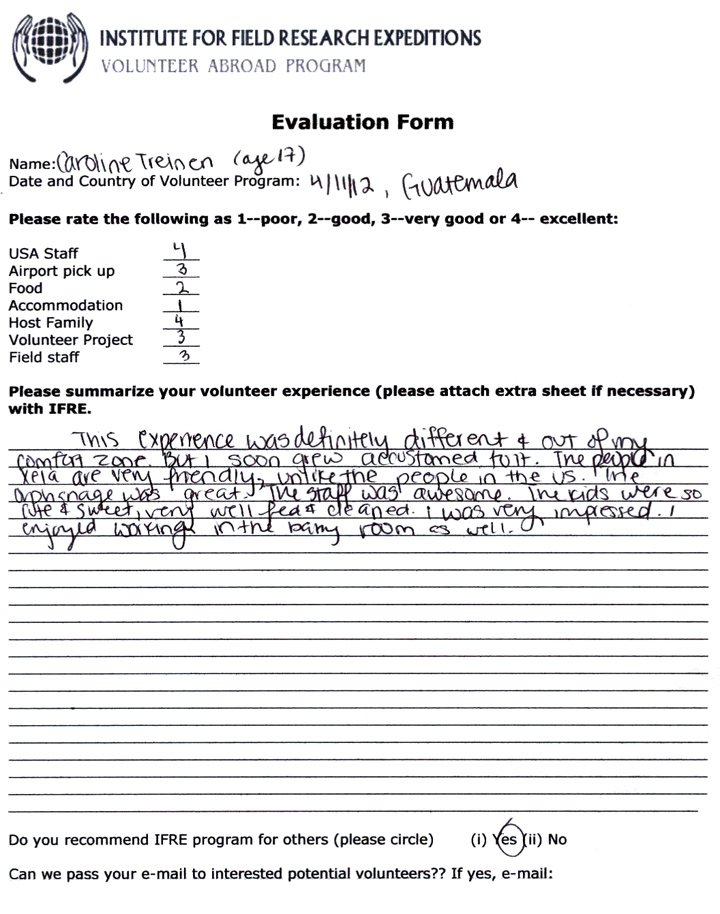 INSTITUTE FOR FIELD RESEARCH EXPEDITIONS
VOLUNTEER ABROAD PROGRAM
Evaluation Form
Name: Caroline Treinen (age 17)
Date and Country of Volunteer Program: 4/11/12, Guatemala
Please rate the following as 1--poor, 2--good, 3--very good or 4-- excellent:
USA Staff 4
Airport pick up 3
Food 2
Accommodation 1
Host Family 4
Volunteer Project 3
Field staff 3
Please summarize your volunteer experience (please attach extra sheet if necessary)
with IFRE.
This experience was definitely different & out of my
comfort zone. But I soon grew accustomed to it. The people in
Xela are very friendly, unlike the people in the US. The
orphanage was great. The staff was awesome. The kids were so
cute & sweet, very well fed & cleaned. I was very impressed. I
enjoyed working in the baby room as well.
Do you recommend IFRE program for others (please circle) (i) Yes (ii) No
Can we pass your e-mail to interested potential volunteers?? If yes, e-mail: